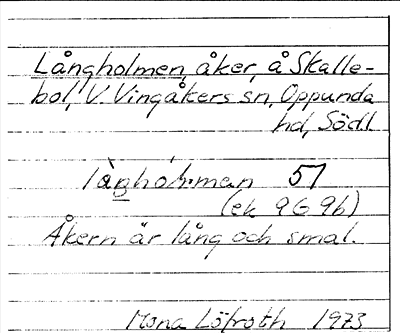 Långholmen, åker, å Skalle-
bol, V. Vingåkers sn, Oppunda
hd, Södl.
51
(ek 9G 9h)
Åkern är lång och smal.
Mona Löfroth 1973